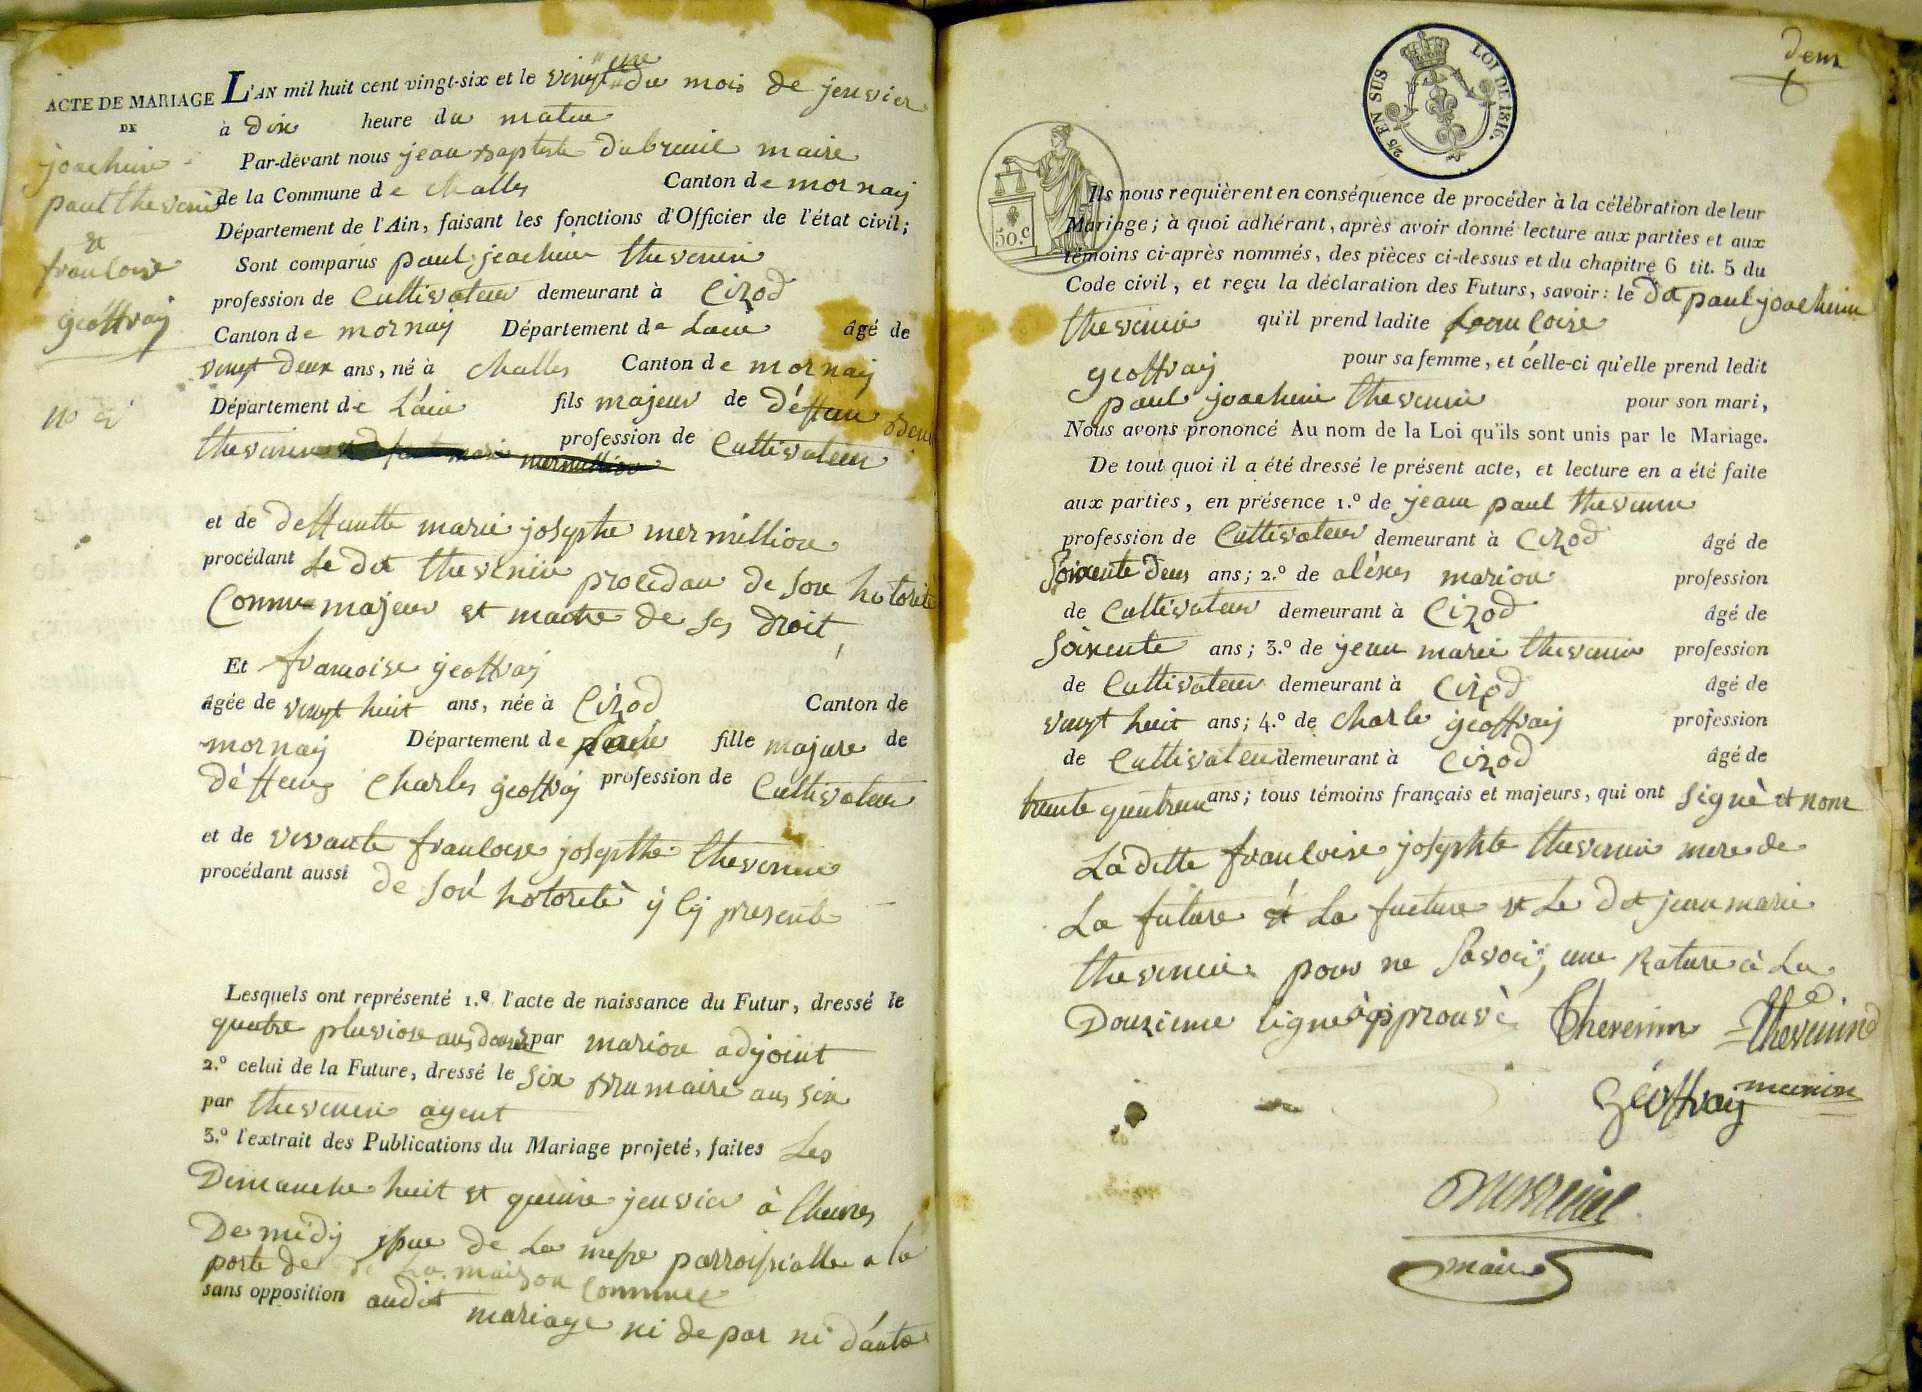 ACTE DE MARIAGE
DE
joachim
paul thevenin
et
francoise
geoffray
no 2
L'AN mil huit cent vingt-six et le vingt une du mois de jenvier
à dix heure du matin
Par-devant nous jean Baptiste Dubreuil maire
de la Commune de Challes Canton de mornay
Département de l'Ain, faisant les fonctions d'Officier de l'état civil;
Sont comparus paul joachim thevenin
profession de Cultivateur demeurant à Cizod
Canton de mornay Département de Lain âgé de
vingt deux ans, né à Challes Canton de mornay
Département de L'ain fils majeur de déffun
thevenin profession de Cultivateur
et de deffuntte marie josephte mermillion
procédant Le dit thevenin procedan de son hotorité
Comme majeur et maitre de ses droit,
Et francoise geoffray
âgée de vingt huit ans, née à Cizod Canton de
mornay Département de Lain fille majure de
déffeung Charles geoffray profession de Cultivateur
et de vivante francoise josephte thevenin
procédant aussi de son hotorité y cy presente
Lesquels ont représenté 1.º l'acte de naissance du Futur, dressé le
quatre pluviose an douze par marion adjoint
2.º celui de la Future, dressé le six Brumaire an six
par thevenin agent
3.º l'extrait des Publications du Mariage projeté, faites Les
Dimanche huit et quinze jenvier à Lheures
De midy issue de La messe parroissialle a la
porte de La maison Commune
sans opposition audit mariage ni de par ni d'autre
deux
2/5 EN SUS
LOI DE 1816.
50.c
Ils nous requièrent en conséquence de procéder à la célébration de leur
Mariage; à quoi adhérant, après avoir donné lecture aux parties et aux
témoins ci-après nommés, des pièces ci-dessus et du chapitre 6 tit. 5 du
Code civil, et reçu la déclaration des Futurs, savoir: le dit paul joachim
thevenin qu'il prend ladite francoise
geoffray pour sa femme, et celle-ci qu'elle prend ledit
paul joachim thevenin pour son mari,
Nous avons prononcé Au nom de la Loi qu'ils sont unis par le Mariage.
De tout quoi il a été dressé le présent acte, et lecture en a été faite
aux parties, en présence 1.º de jean paul thevenin
profession de Cultivateur demeurant à Cizod âgé de
Soixente deux ans; 2.º de aléxis marion profession
de Cultivateur demeurant à Cizod âgé de
Soixente ans; 3.º de jean marie thevenin profession
de Cultivateur demeurant à Cizod âgé de
vingt huit ans; 4.º de Charle geoffray profession
de Cultivateur demeurant à Cizod âgé de
trente ans; tous témoins français et majeurs, qui ont signé et nom
Laditte francoise josephte thevenin mere de
La future et La fueture et Le dit jean marie
thevenin pour ne Savoir, une Rature à La
Douzieme ligne approuvè Thevenin Thevenin
Géoffray marion
Dubreuil
maire